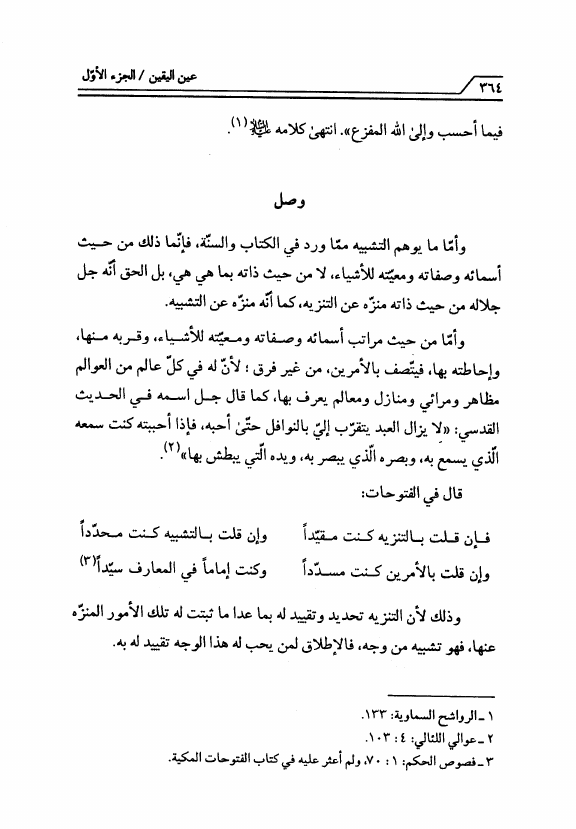 ٣٦٤ عين اليقين / الجزء الأوّل
فيما أحسب وإلىٰ الله المفزع». انتهىٰ كلامه ﷺ(١).
وصل
وأمّا ما يوهم التشبيه ممّا ورد في الكتاب والسنّة، فإنّما ذلك من حيث
أسمائه وصفاته ومعيّته للأشياء، لا من حيث ذاته بما هي هي، بل الحق أنّه جل
جلاله من حيث ذاته منزّه عن التنزيه، كما أنّه منزّه عن التشبيه.
وأمّا من حيث مراتب أسمائه وصفاته ومعيّته للأشياء، وقربه منها،
وإحاطته بها، فيتّصف بالأمرين، من غير فرق ؛ لأنّ له في كلّ عالم من العوالم
مظاهر ومرائي ومنازل ومعالم يعرف بها، كما قال جل اسمه في الحديث
القدسي: «لا يزال العبد يتقرّب إليّ بالنوافل حتّىٰ أحبه، فإذا أحببته كنت سمعه
الّذي يسمع به، وبصره الّذي يبصر به، ويده الّتي يبطش بها»(٢).
قال في الفتوحات:
فإن قلت بالتنزيه كنت مقيّداً وإن قلت بالتشبيه كنت محدّداً
وإن قلت بالأمرين كنت مسدّداً وكنت إماماً في المعارف سيّداً(٣)
وذلك لأن التنزيه تحديد وتقييد له بما عدا ما ثبتت له تلك الأمور المنزّه
عنها، فهو تشبيه من وجه، فالإطلاق لمن يحب له هذا الوجه تقييد له به.
١ ـ الرواشح السماوية: ١٣٣.
٢ ـ عوالي اللئالي: ٤ : ١٠٣.
٣ ـ فصوص الحكم: ١ : ٧٠، ولم أعثر عليه في كتاب الفتوحات المكية.